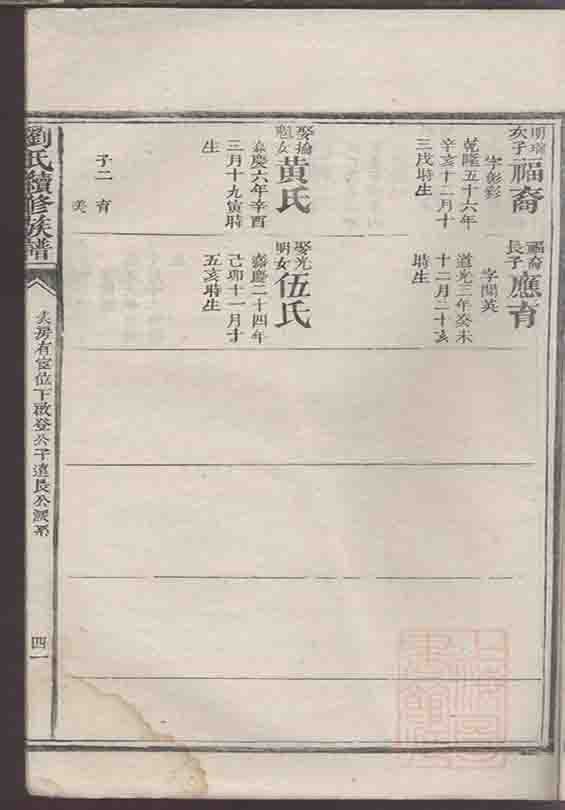 明瑞
次子
福裔
字彭彩
乾隆五十六年
辛亥十二月十
三戌時生
娶掄
魁女
黃氏
嘉慶六年辛酉
三月十九寅時
生
子二 育
美
福裔
長子
應育
字開英
道光三年癸未
十二月二十亥
時生
娶光
明女
伍氏
嘉慶二十四年
己卯十一月十
五亥時生
劉氏續修族譜
房有宦位下啟登公子遠長公派系
四一
上海圖
書館藏